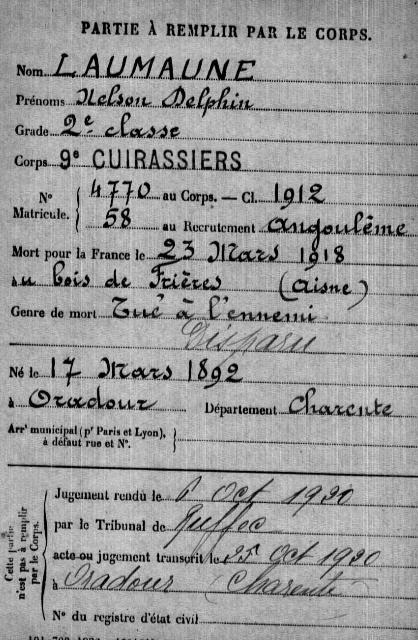 PARTIE À REMPLIR PAR LE CORPS.
Nom LAUMAUNE
Prénoms Nelson Delphin
Grade 2e classe
Corps 9e CUIRASSIERS
N° Matricule. { 4770 au Corps. — Cl. 1912
58 au Recrutement Angoulême
Mort pour la France le 23 Mars 1918
au bois de Frières (Aisne)
Genre de mort Tué à l'ennemi
Disparu
Né le 17 Mars 1892
à Oradour Département Charente
Arrt municipal (pr Paris et Lyon),
à défaut rue et N°.
Cette partie n'est pas à remplir par le Corps.
Jugement rendu le Oct 1920
par le Tribunal de Ruffec
acte ou jugement transcrit le 25 Oct 1920
à Oradour (Charente
N° du registre d'état civil